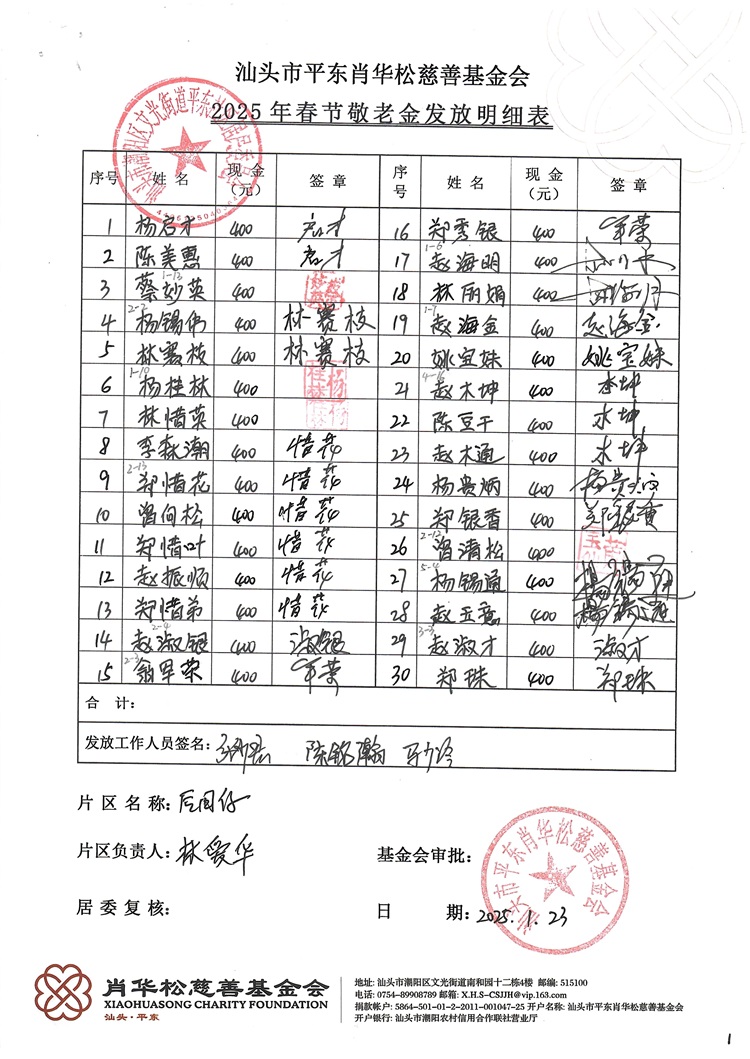 汕头市平东肖华松慈善基金会
2025年春节敬老金发放明细表
序号 姓名 现金（元） 签章 序号 姓名 现金（元） 签章
1 杨启才 400 启才 16 郑秀银 400 军荣
2 陈美惠 400 启才 17 1-6 赵海明 400
3 1-13 蔡妙英 400 18 林丽娟 400
4 2-3 杨锡伟 400 林赛枝 19 1-7 赵海金 400 赵海金
5 林赛枝 400 林赛枝 20 姚宝妹 400 姚宝妹
6 1-10 杨桂林 400 杨桂林 21 4-16 赵木坤 400 木坤
7 林惜英 400 22 陈豆干 400 木坤
8 李森潮 400 惜花 23 赵木通 400 木坤
9 2-13 郑惜花 400 惜花 24 杨贵炳 400
10 曾向松 400 惜花 25 郑银香 400 郑银香
11 郑惜叶 400 惜花 26 2-12 曾清松 400
12 赵振顺 400 惜花 27 5-4 杨锡通 400 杨锡通
13 郑惜弟 400 惜花 28 赵玉意 400 杨锡通
14 2-4 赵淑银 400 淑银 29 3-3 赵淑才 400 淑才
15 2-3 翁军荣 400 军荣 30 郑珠 400 郑珠
合计：
发放工作人员签名： 陈铭瀚
片区名称：后围仔
片区负责人：林爱华
基金会审批：
汕头市平东肖华松慈善基金会
居委复核：
日期：2025.1.23
肖华松慈善基金会
XIAOHUASONG CHARITY FOUNDATION
汕头·平东
地址: 汕头市潮阳区文光街道南和园十二栋4楼 邮编: 515100
电话: 0754-89908789 邮箱: X.H.S-CSJJH@vip.163.com
捐款帐户: 5864-501-01-2-2011-001047-25 开户名称: 汕头市平东肖华松慈善基金会
开户银行: 汕头市潮阳农村信用合作联社营业厅
1